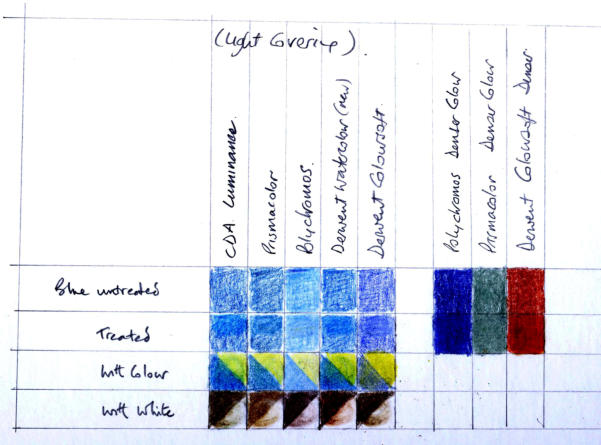 (Light Covering).
CDA Luminance.
Prismacolor
Polychromos.
Derwent Watercolour (new)
Derwent Coloursoft.
Polychromos Denser Colour
Primacolor Denser Colour
Derwent Coloursoft Denser
Blue untreated
Treated
With Colour
With White